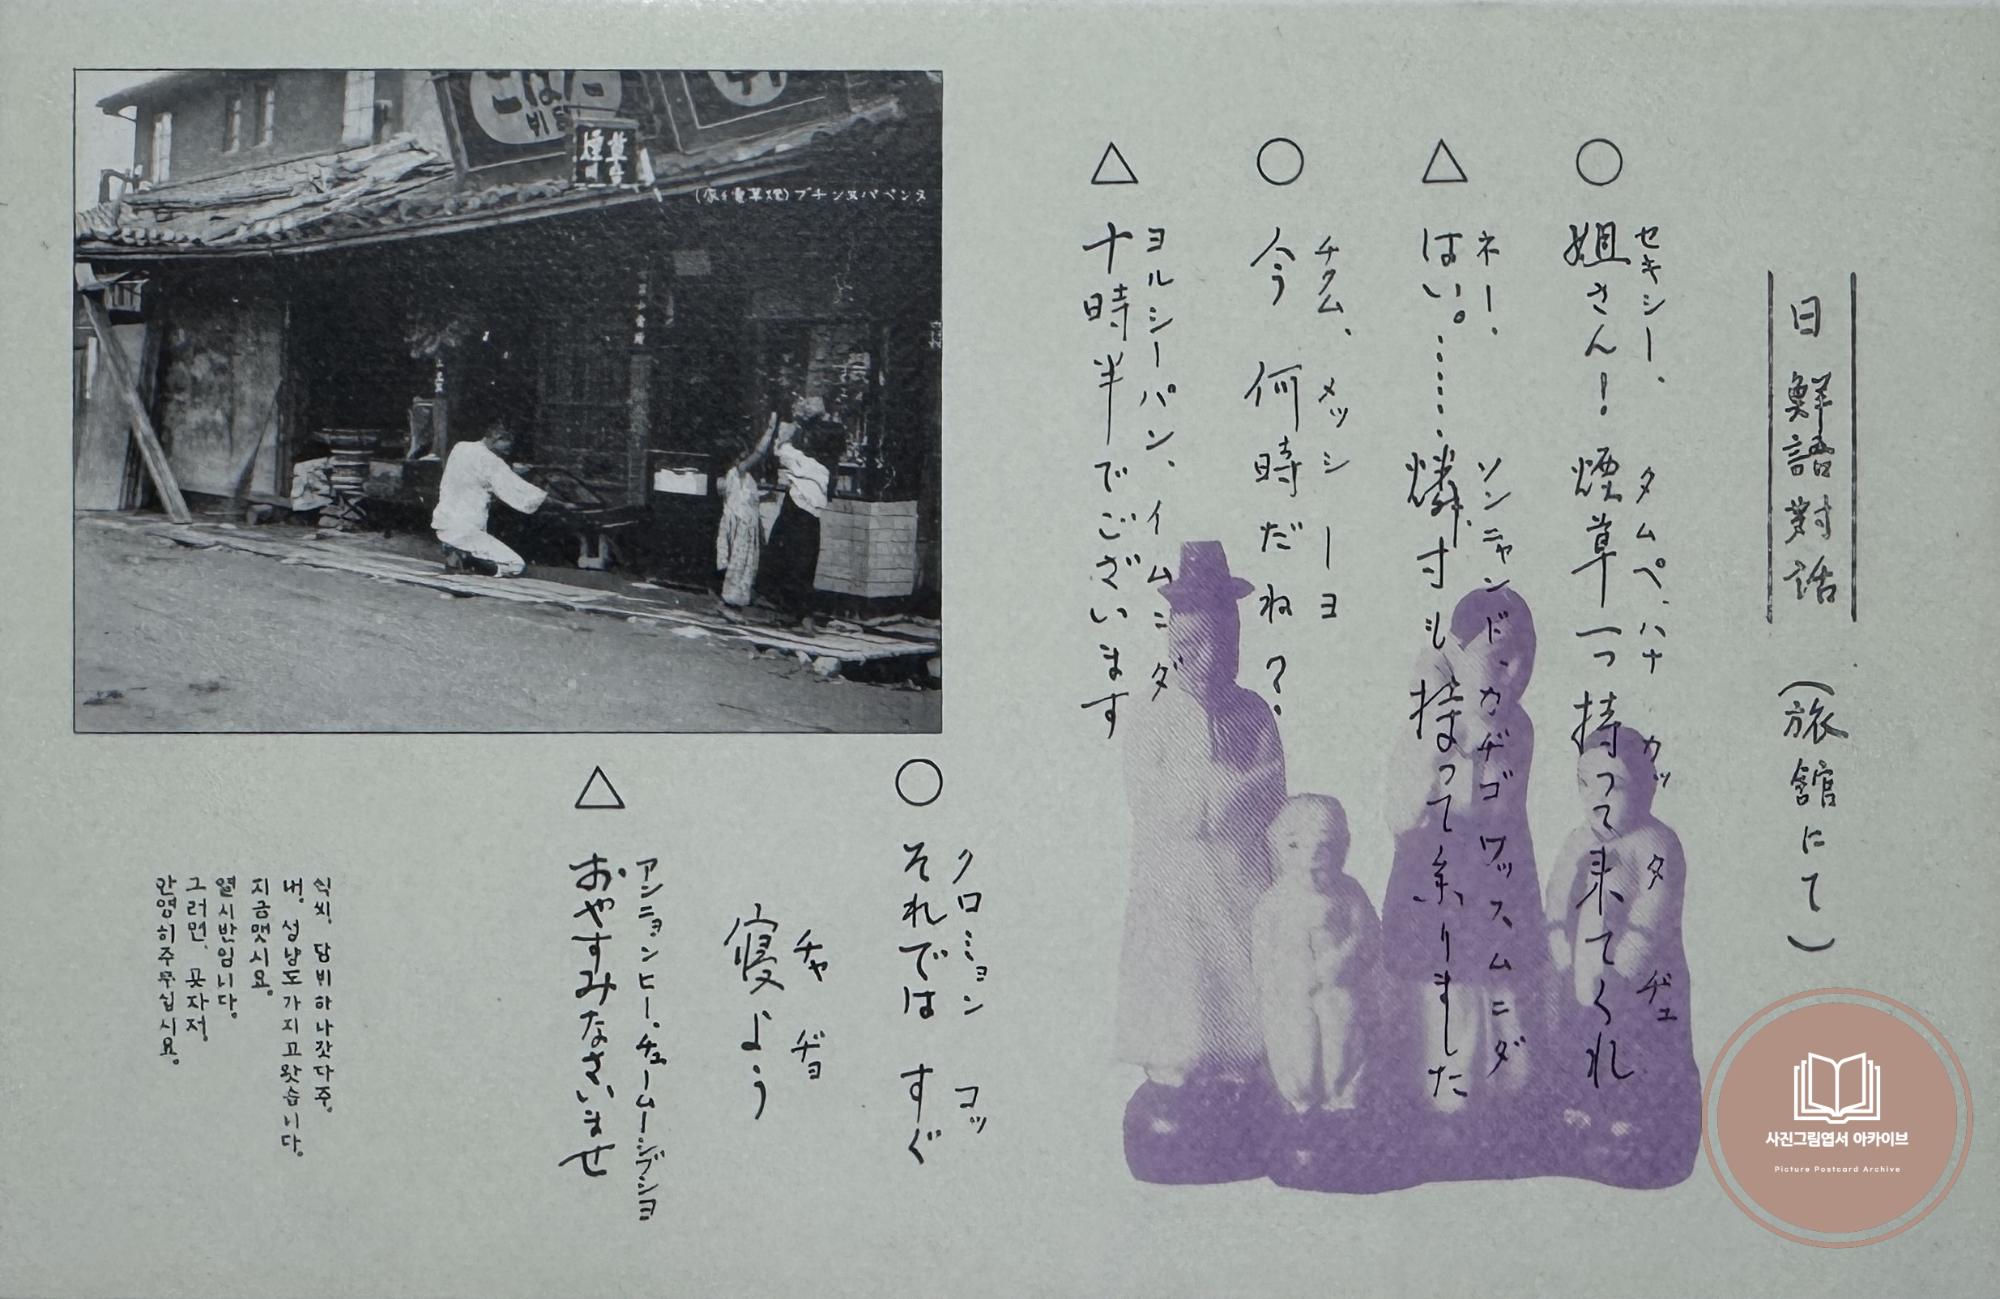 日鮮語對話(旅館にて)
○
セキシー、タムペ、ハナ カッタ ヂュ
姐さん!煙草一つ持って来てくれ
△
ネー、ソンニャンド、カヂゴ ワッスムニダ
はい。……燐寸も持って参りました
○
チクム、メッシーヨ
今何時だね?
△
ヨルシーパン、イムニダ
十時半でございます
○
クロミョン コッ
それでは すぐ
チャヂョ
寝よう
△
アンニョンヒー、チュームーシプシヨ
おやすみなさいませ
담비하나갓다주。
내。성냥도가지고왓습니다。
지금멧시요。
열시반임니다。
그러면、곳자저。
안영히주무십시요。
たばこ
煙草
사진그림엽서 아카이브
Picture Postcard Archive